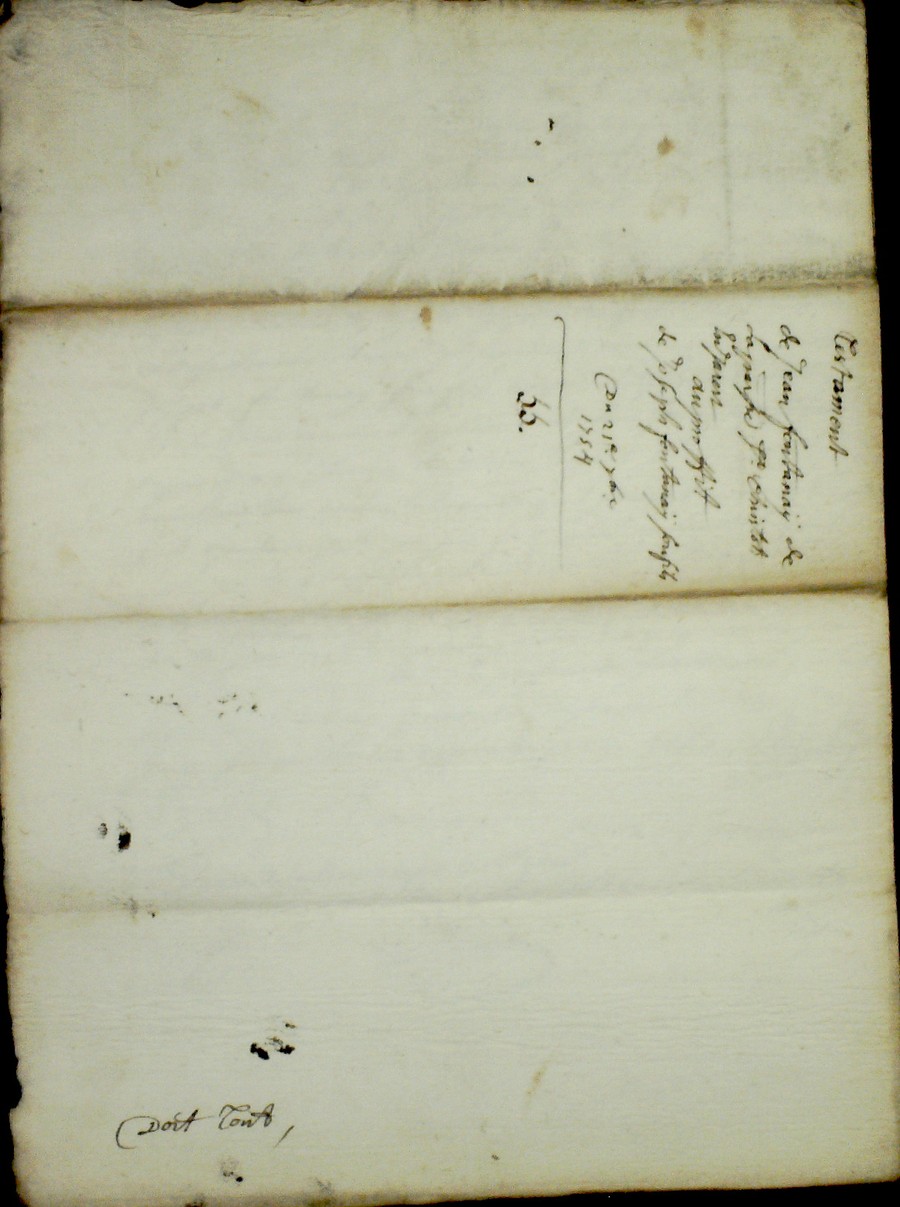 Testament
de jean fontanaÿ de
La paroisse St. Christ
au proffit
de Joseph fontanaÿ son fils
Du 21e 7bre
1754
55.
Doit Tout,